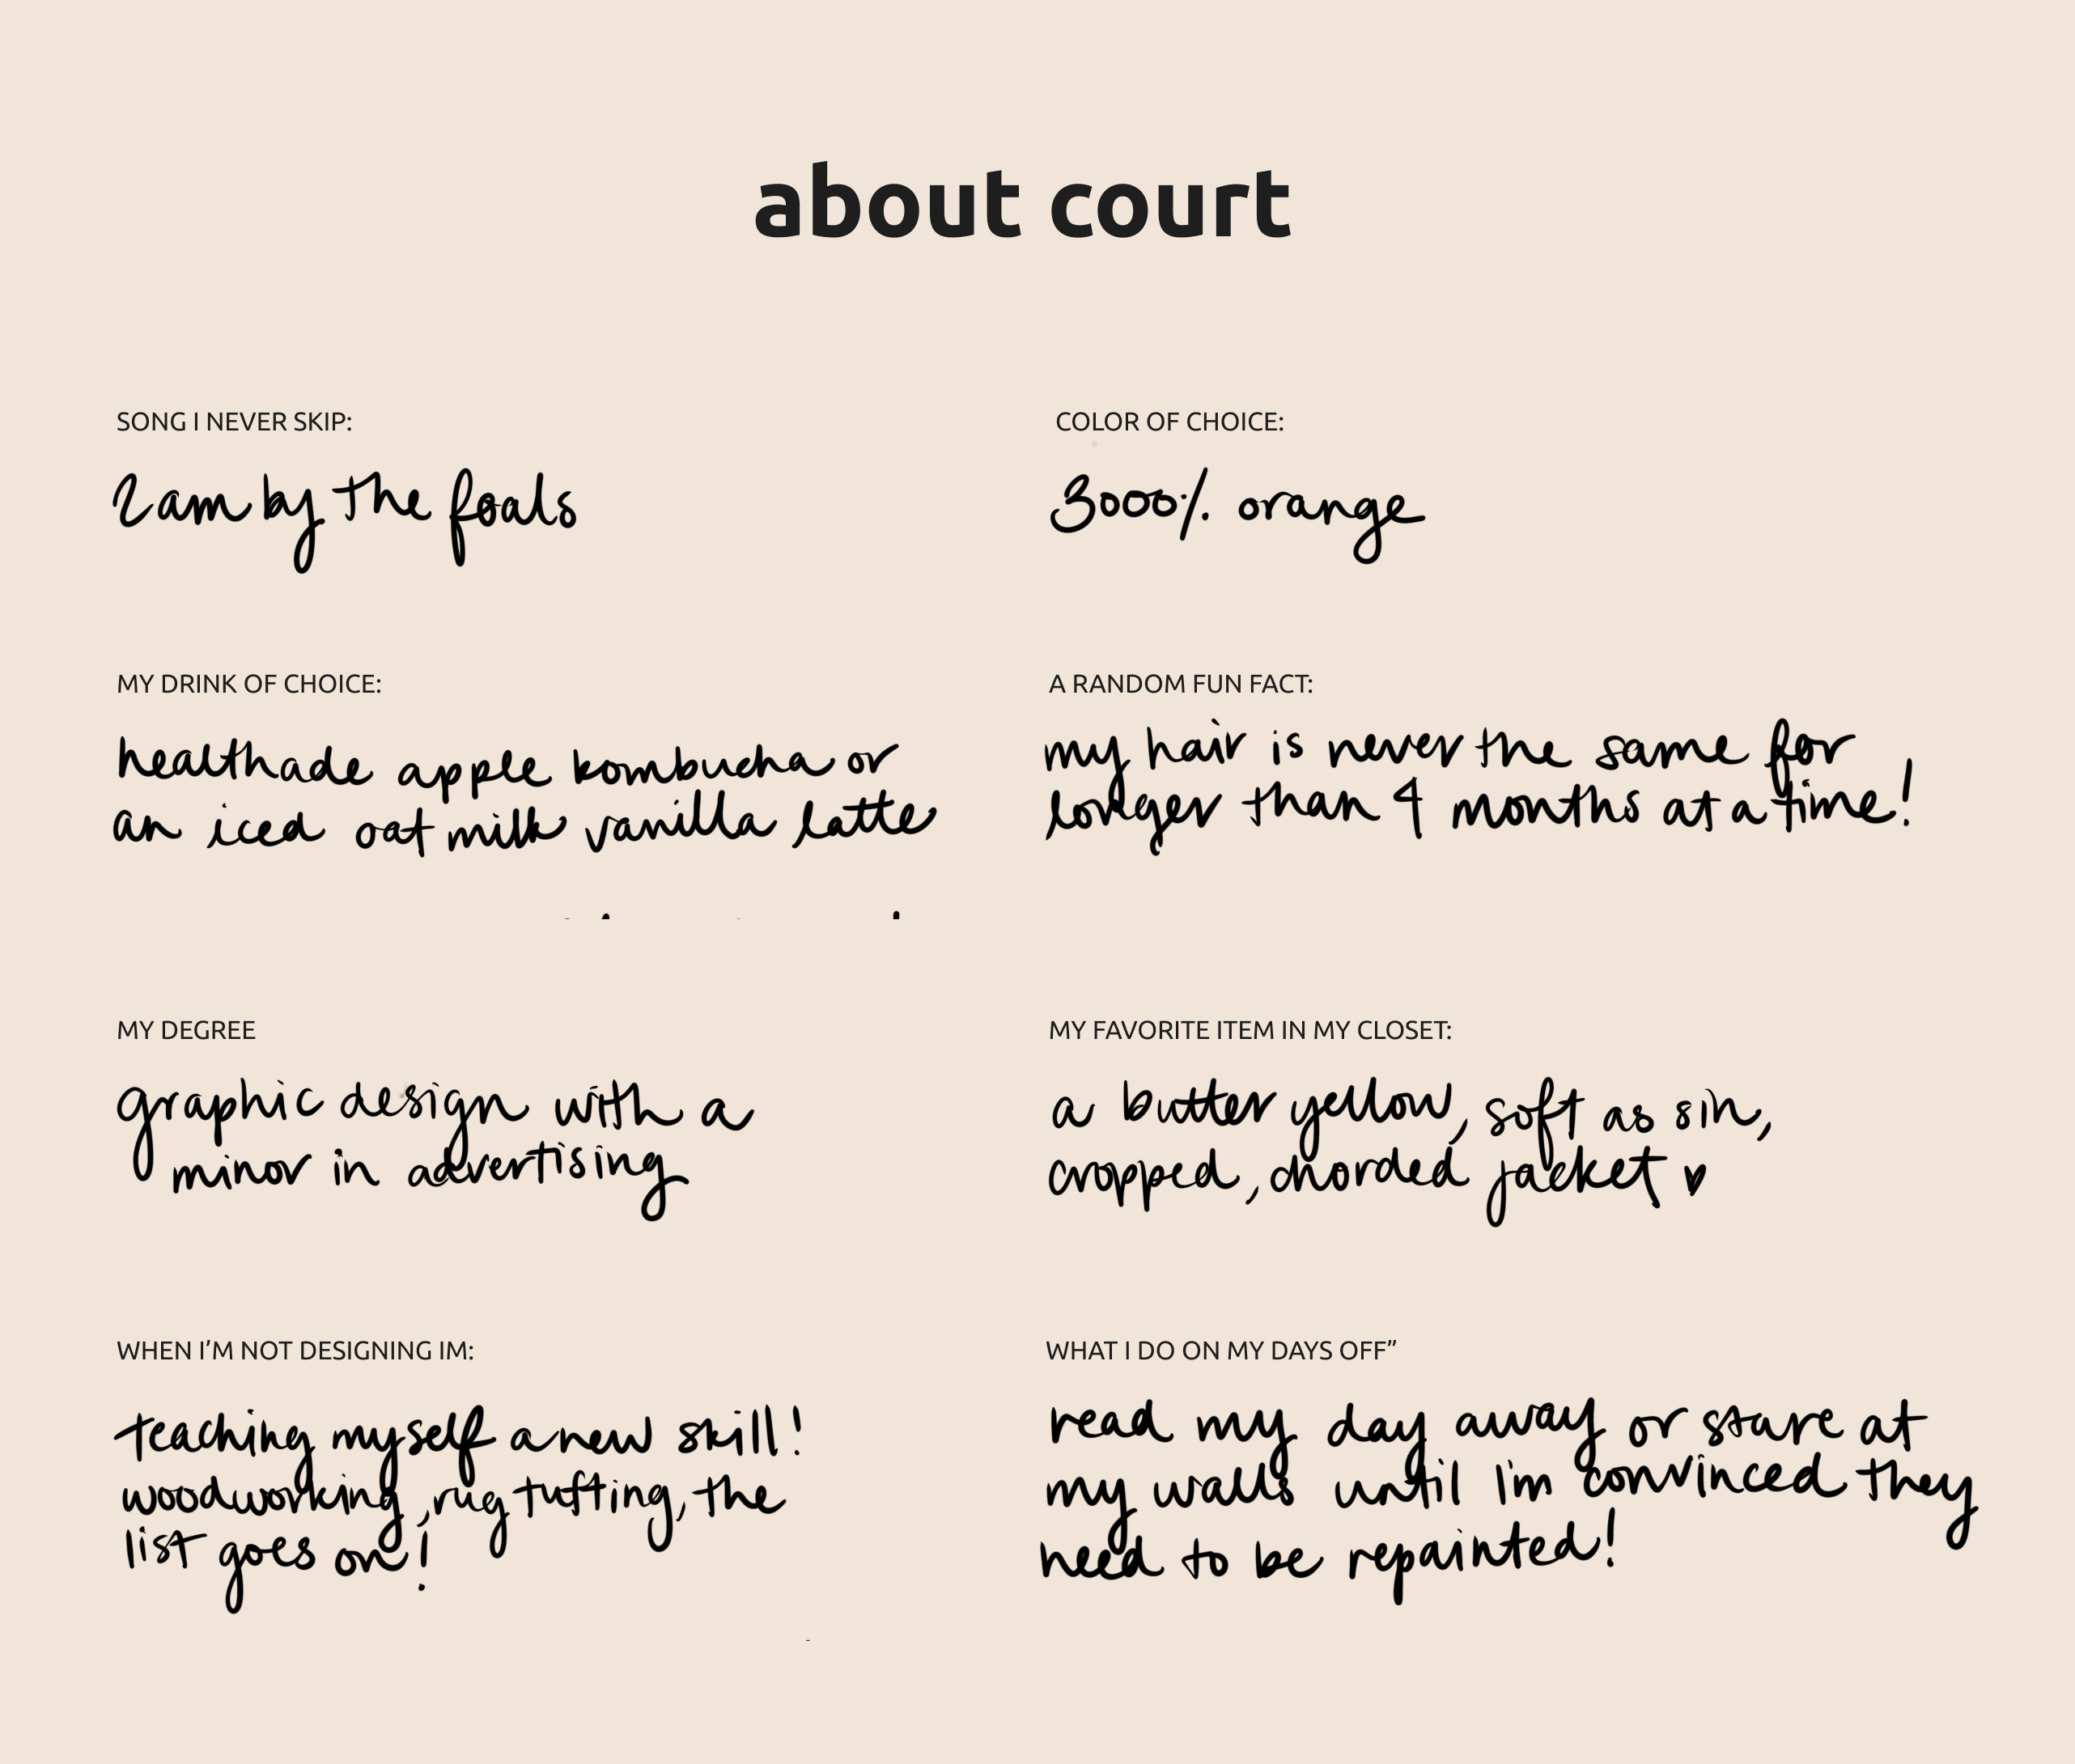 about court
SONG I NEVER SKIP:
2am by the foals
COLOR OF CHOICE:
3000% orange
MY DRINK OF CHOICE:
healthade apple kombucha or
an iced oat milk vanilla latte
A RANDOM FUN FACT:
my hair is never the same for
longer than 4 months at a time!
MY DEGREE
graphic design with a
minor in advertising
MY FAVORITE ITEM IN MY CLOSET:
a butter yellow, soft as sin,
cropped, chorded jacket ♥
WHEN I’M NOT DESIGNING IM:
teaching myself a new skill!
woodworking, rug tufting, the
list goes on!
WHAT I DO ON MY DAYS OFF”
read my day away or stare at
my walls until I'm convinced they
need to be repainted!